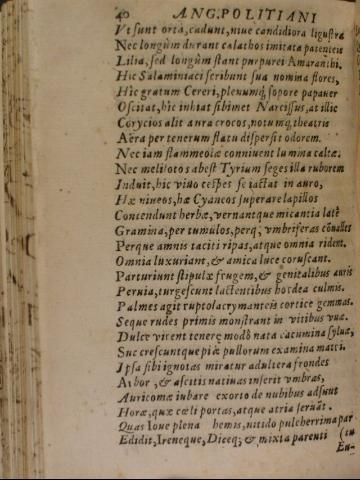 40 ANG. POLITIANI
Vt sunt orta, cadunt, niue candidiora ligustra
Nec longùm durant calathos imitata patenteis
Lilia, sed longùm stant purpurei Amaranthi.
Hic Salaminiaci scribunt sua nomina flores,
Hìc gratum Cereri, plenumq; sopore papauer
Oscitat, hìc inhiat sibimet Narcissus, at illic
Corycios alit aura crocos, notumq; theatris
Aëra per tenerum flatu dispersit odorem.
Nec iam flammeolæ conniuent lumina caltæ,
Nec melilotos abest Tyrium seges illa ruborem
Induit, hic viuo cespes se iactat in auro,
Hæ niueos, hæ Cyaneos superare lapillos
Contendunt herbæ, vernantque micantia latè
Gramina, per tumulos, perq; vmbriferas cōualles
Perque amnis taciti ripas, atque omnia rident.
Omnia luxuriant, & amica luce coruscant.
Parturiunt stipulæ frugem, & genitalibus auris
Peruia, turgescunt lactentibus hordea culmis.
Palmes agit rupto lacrymanteis cortice gemmas.
Seque rudes primis monstrant in vitibus vuæ.
Dulce virent tenerę modò nata cacumina syluæ,
Suc crescuntque piæ pullorum examina matri.
Ipsa sibi ignotas miratur adultera frondes
Arbor, & ascitis natiuas inserit vmbras,
Auricomæ iubare exorto de nubibus adsunt
Horæ, quæ cœli portas, atque atria seruāt.
Quas Ioue plena hemis, nitido pulcherrima par
Edidit, Ireneque, Diceq; & mixta parenti (tu
Eu-